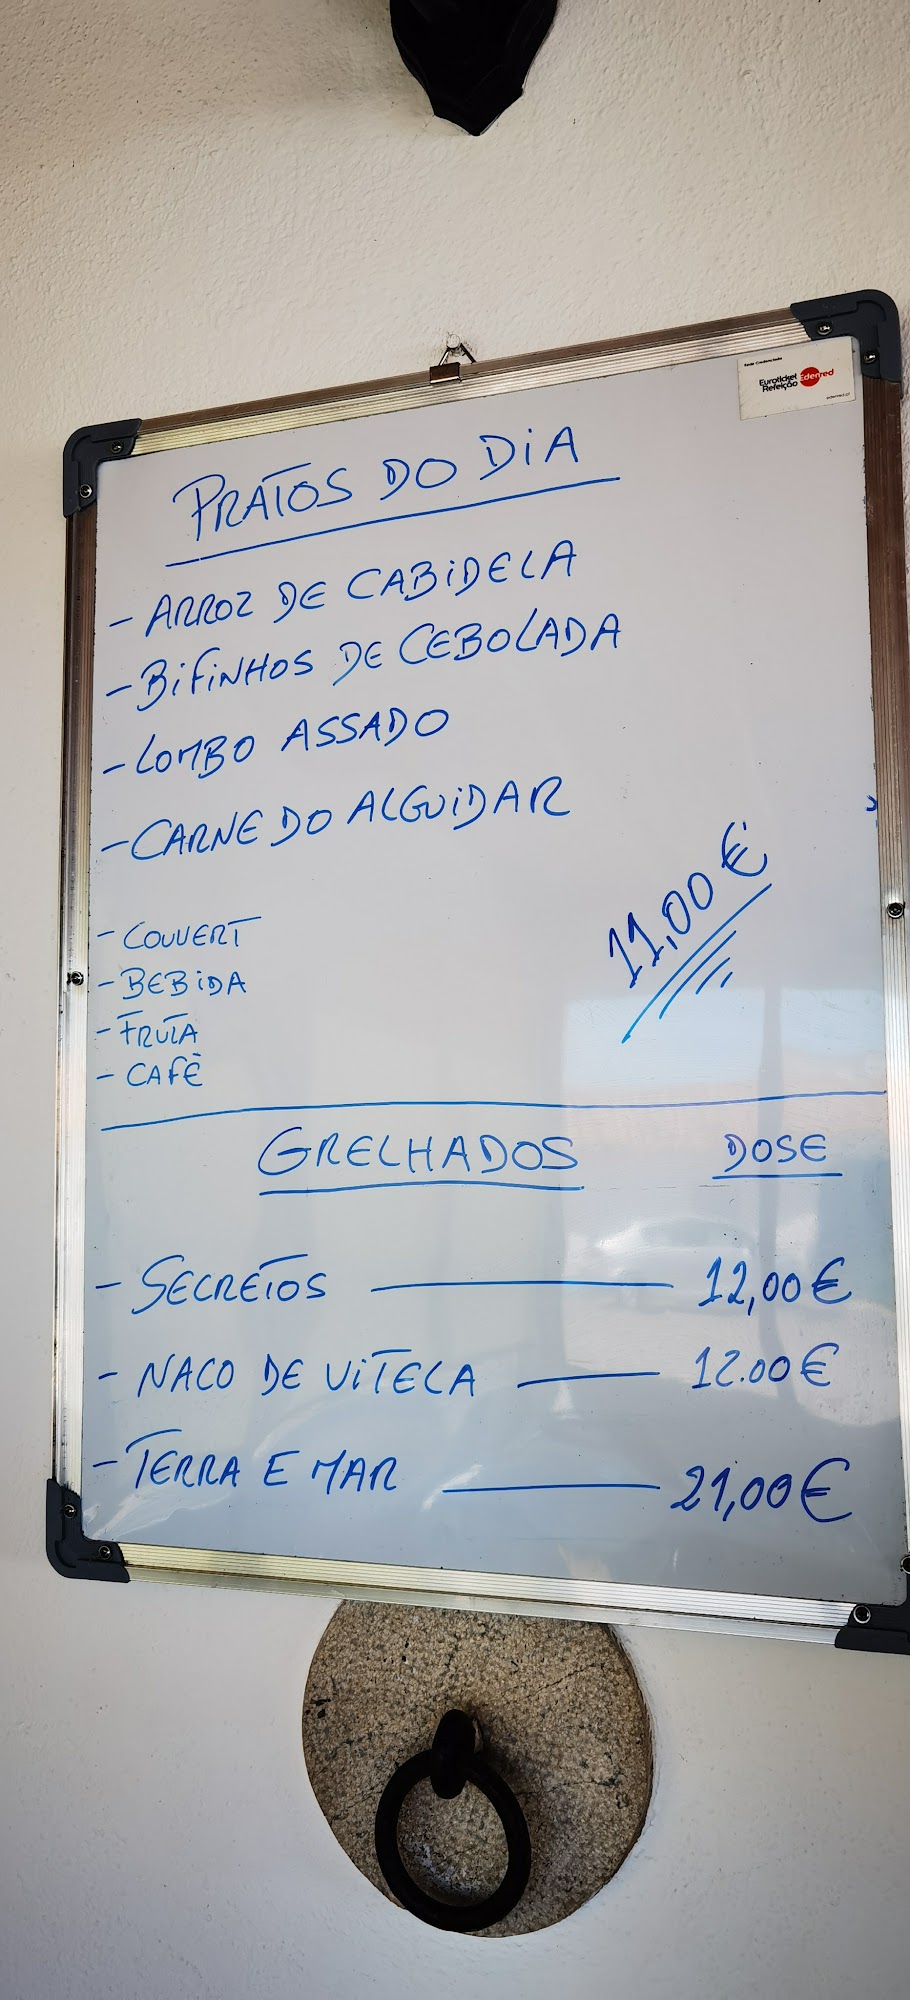 Rede Credenciada
Euroticket
Refeição
Edenred
PRATOS DO DIA
- ARROZ DE CABIDELA
- BIFINHOS DE CEBOLADA
- LOMBO ASSADO
- CARNE DO ALGUIDAR
11,00 €
- COUVERT
- BEBIDA
- FRUTA
- CAFÈ
GRELHADOS DOSE
- SECRETOS 12,00 €
- NACO DE VITELA 12.00 €
- TERRA E MAR 21,00 €